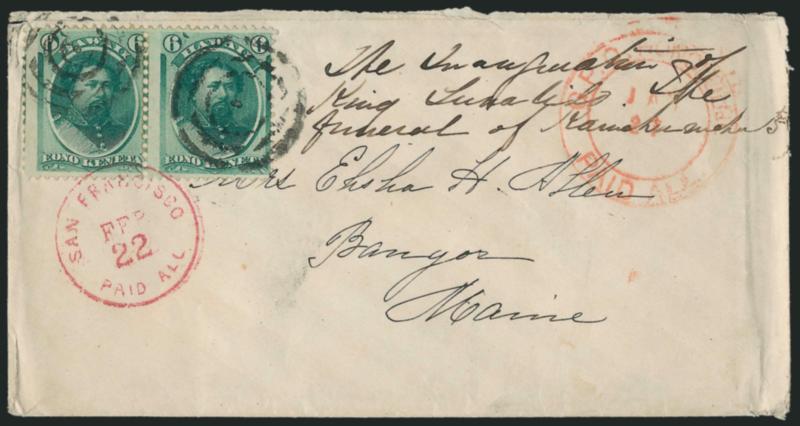 6 HAWAII 6
EONO KENETA
6 HAWAII 6
EONO KENETA
The Inauguration of
King Lunalilo & the
funeral of Kamehameha 5
Mrs Elisha H. Allen
Bangor
Maine
SAN FRANCISCO
FEB
22
PAID ALL
PAID ALL